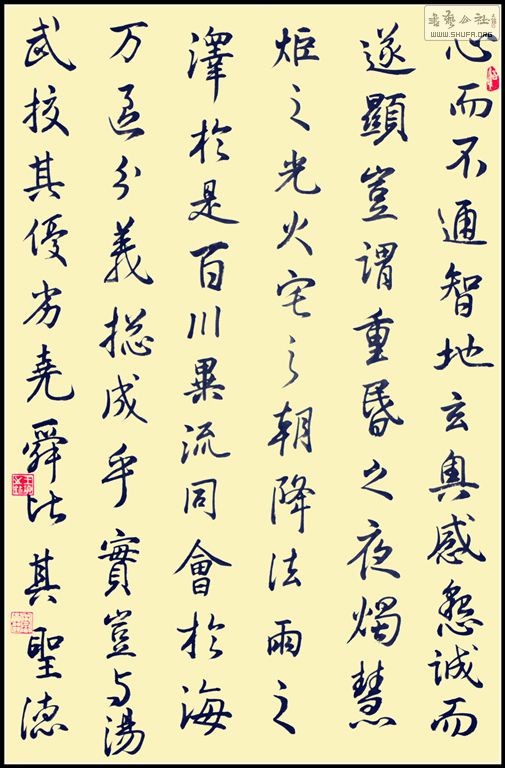 心而不通智地玄奧感懇誠而
遂顯豈謂重昏之夜燭慧
炬之光火宅之朝降法雨之
澤於是百川異流同會於海
万區分義揔成乎實豈与湯
武挍其優劣堯舜比其聖德
書藝公社
WWW.SHUFA.ORG